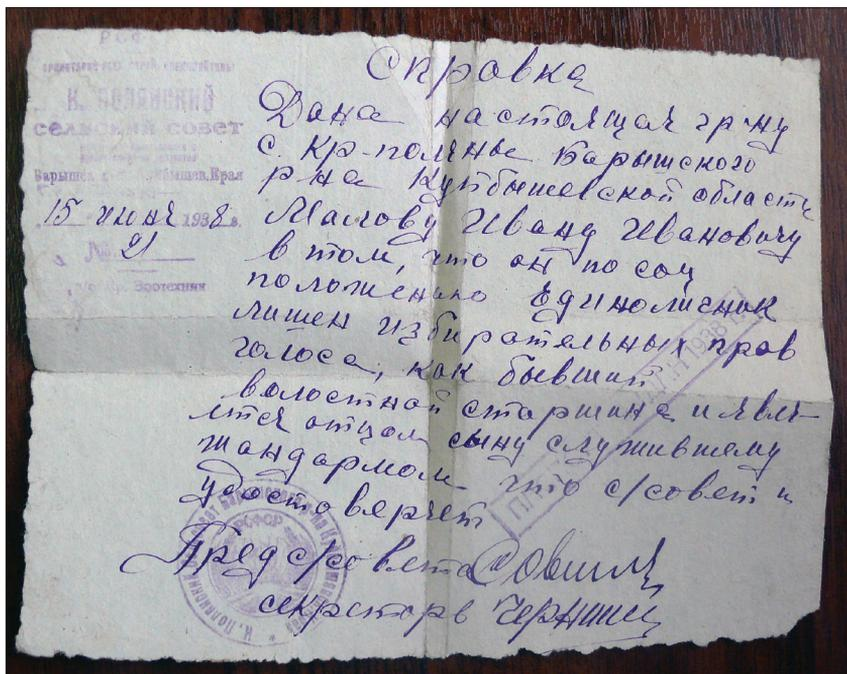 РСФСР
К. Полянский
сельский совет
Барышск
Края
15 июня 1938 г.
№ 21
Зоотехник
Справка
Дана настоящая гр-ну
с. Кр-поляны Барышского
р-на Куйбышевской области
Малову Ивану Ивановичу
в том, что он по соц
положению единоличник
лишен избирательных прав
голоса, как бывший
волостной старшина и явля-
ится отцом сыну служившему
жандармом что с/совет и
удостоверяет
Пред с/совета
секретарь
РСФСР
1938 г.